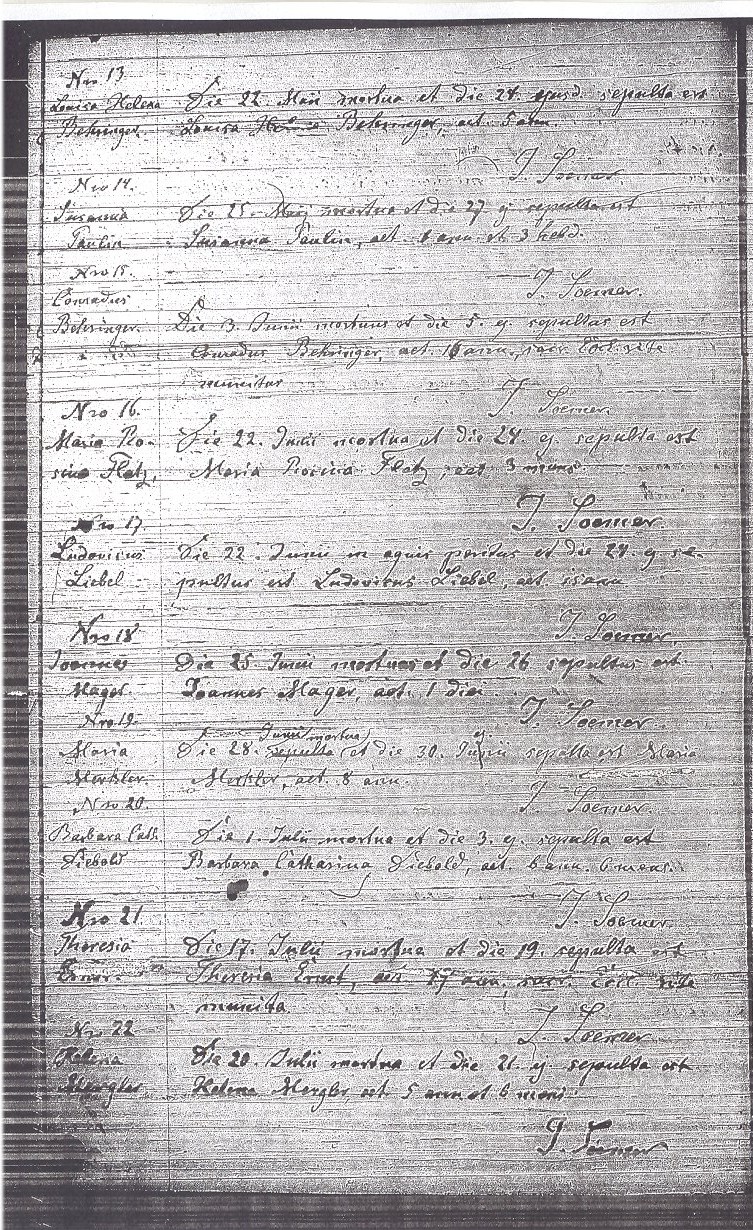 Nro 13
Louisa Helena Die 22. Maii mortua et die 24. ejusd. sepulta est
Behringer. Louisa Behringer, aet. 5 ann.
J. Soemer.
Nro 14.
Susanna Die 25. Maij mortua et die 27 ej. sepulta est
Paulin Susanna Paulin, aet. 1 ann. et 3 hebd.
Nro 15. J. Soemer.
Conradus
Behringer. Die 3. Junii mortuus et die 5. ej. sepultus est
Conradus Behringer, aet. ann., sacr. Eccl. rite
munitus
Nro 16. J. Soemer.
Maria Ro- Die 22. Junii mortua et die 24. ej. sepulta est
sina Flatz, Maria Rosina Flatz, aet. 3 mens.
Nro 17. J. Soemer.
Ludovicus Die 22. Junii in aquis peritus et die 24. ej se-
Liebel pultus est Ludovicus Liebel, aet. ann
Nro 18 J. Soemer.
Joannes Die 25 Junii mortuus et die 26 sepultus est
Mager Joannes Mager, aet. 1 diei
Nro 19. J. Soemer.
Junii mortua
Maria Die 28. sepulta et die 30. Junii sepulta est Maria
Merkler. Merkler, aet. 8 ann.
Nro 20 J. Soemer.
Barbara Cath. Die 1. Julii mortua et die 3. ej. sepulta est
Diebold Barbara Catharina Diebold, aet. 6 ann. 6 mens.
Nro 21. J. Soemer.
Theresia Die 17. Julii mortua et die 19. sepulta est
Ernst. Theresia Ernst, aet. ann. sacr. Eccl. rite
munita.
Nro 22 J. Soemer
Helena Die 20. Julii mortua et die 21. ej. sepulta est
Mergler Helena Mergler aet 5 ann et 6 mens.
J. Soemer